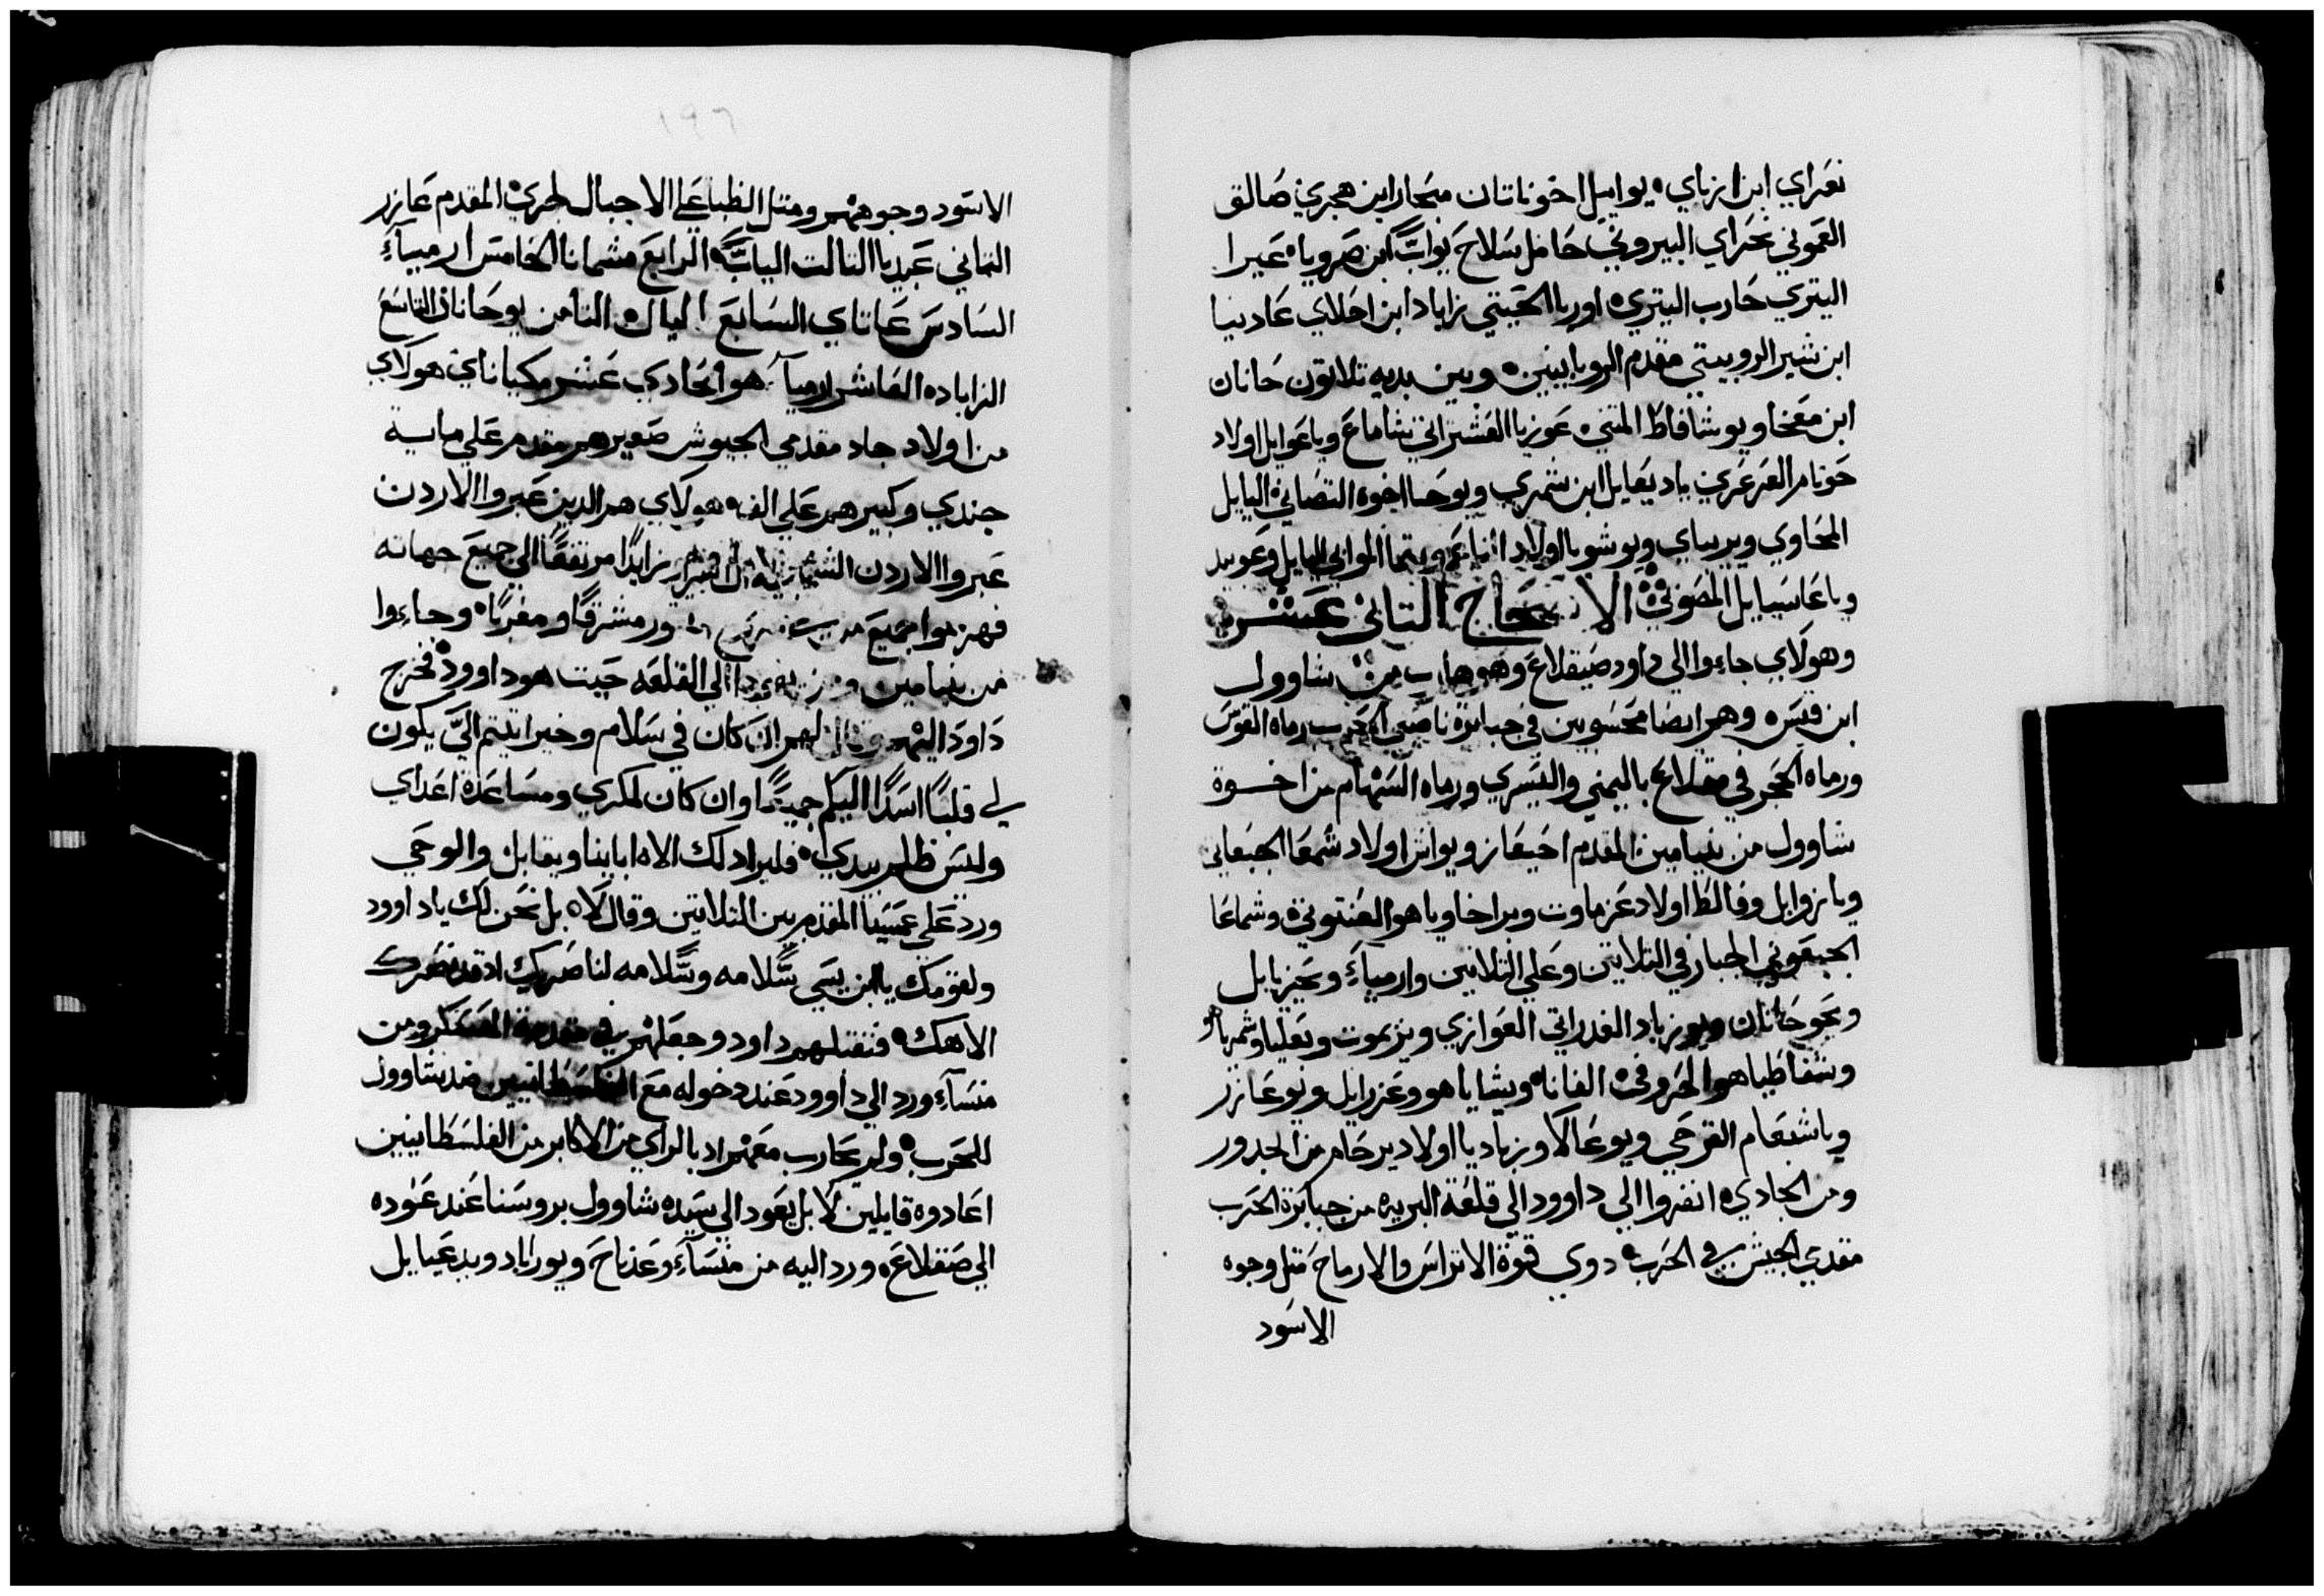 نعراي ابن ازباي يواييل اخو ناتان مبحار ابن هجري صالق
العموني نحراي البيروتي حامل سلاح يواب ابن صرويا عيرا
اليتري حارب اليتري اوريا الحيتي زاباد ابن احلاي عادينا
ابن شيرا الروبيتي مقدم الروبابيين وبين يديه تلاتون حانان
ابن معخا ويوشافاط المتني عوزيا العشتراتي شاماع وياعوايل اولاد
حوتام العرعري يادِيعايل ابن شمري ويوحا اخوه التصاني اليايل
المحاوي ويريباي ويوشويا اولاد الناعم ويتما الموابي اليايل وعوبيد
وياعاسيايل المصوني الاصحاح التاني عشر
وهولاي جاءوا الي داود صيقلاع وهو هارب من شاوول
ابن قيس وهم ايضا محسوبين في جبابرة ناصبي الحرب رماه القوس
ورماه الحجر في مقلاع باليمني واليسري ورماه السهام من اخوة
شاوول من بنيامين المقدم احيعازر ويواش اولاد شمعا الجبعاتي
ويازوايل وفالط اولاد عزماوت وبراخا وياهو العنتوتي وشماعا
الجبعوني الجبار في التلاتين وعلي التلاتين وارمياء ويحزيايل
ويحوحانان ويوزباد الغدراتي العوازي ويزيموت وبعليا وشمريا هو
وشفاطيا هو الحروفي الفانا ويشايا هو وعزرايل ويوعازر
وياشبعام القرحي ويوعالا وزباديا اولاد يرحام من الجدور
ومن الجادي انفزوا الي داوود الي قلعة البريه من جبابرة الحرب
مقدمي الجيش في الحرب دوي قوة الاتراس والارماح متل وجوه
الاسود
١٩٦
الاسود وجوههم ومتل الظبا علي الاجبال لجري المقدم عازر
التاني عبديا التالت الياب الرابع مشمانا الخامس ارمياء
السادس عاتاي السابع الياك التامن يوحانان التاسع
الزاباد العاشر ارميآ هو الحادي عشر مكياناي هولاي
من اولاد جاد مقدمي الجيوش صغيرهم مقدم علي ماية
جندي وكبيرهم علي الف هولاي هم الدين عبروا الاردن
عبروا الاردن زايدا مرتفعا الي جميع جهاته
فهزموا جميع مشرقا ومغربا وجاءوا
من بنيامين ومن يهودا الي القلعه حيت هو داوود فخرج
داود اليهم وقال لهم ان كان في سلام وخير اتيتم الي يكون
لي قلبا اسدا اليكم جميعا وان كان لمكري ومساعدة اعداي
وليس ظلم بيدي فليرا دلك الاه ابايينا ويقابل والوحي
ورد علي عمسينا المقدم بين التلاتين وقال لا بل نحن لك ياداوود
ولقومك يا ابن يسي سلامه وسلامه لناصريك اد قد نصرك
الاهك فتقبلهم داود وجعلهم في مقدمة العسكر ومن
منسآء ورد الي داوود عند دخوله مع الفلسطانيين ضد شاوول
للحرب ولم يحارب معهم اد بالراي من الاكابر من الفلسطانيين
اعادوه قايلين لا بل يعود الي سيده شاوول بروسنا عند عوده
الي صقلاع ورد اليه من منسآء وعدناح ويوزاباد ويدعيايل